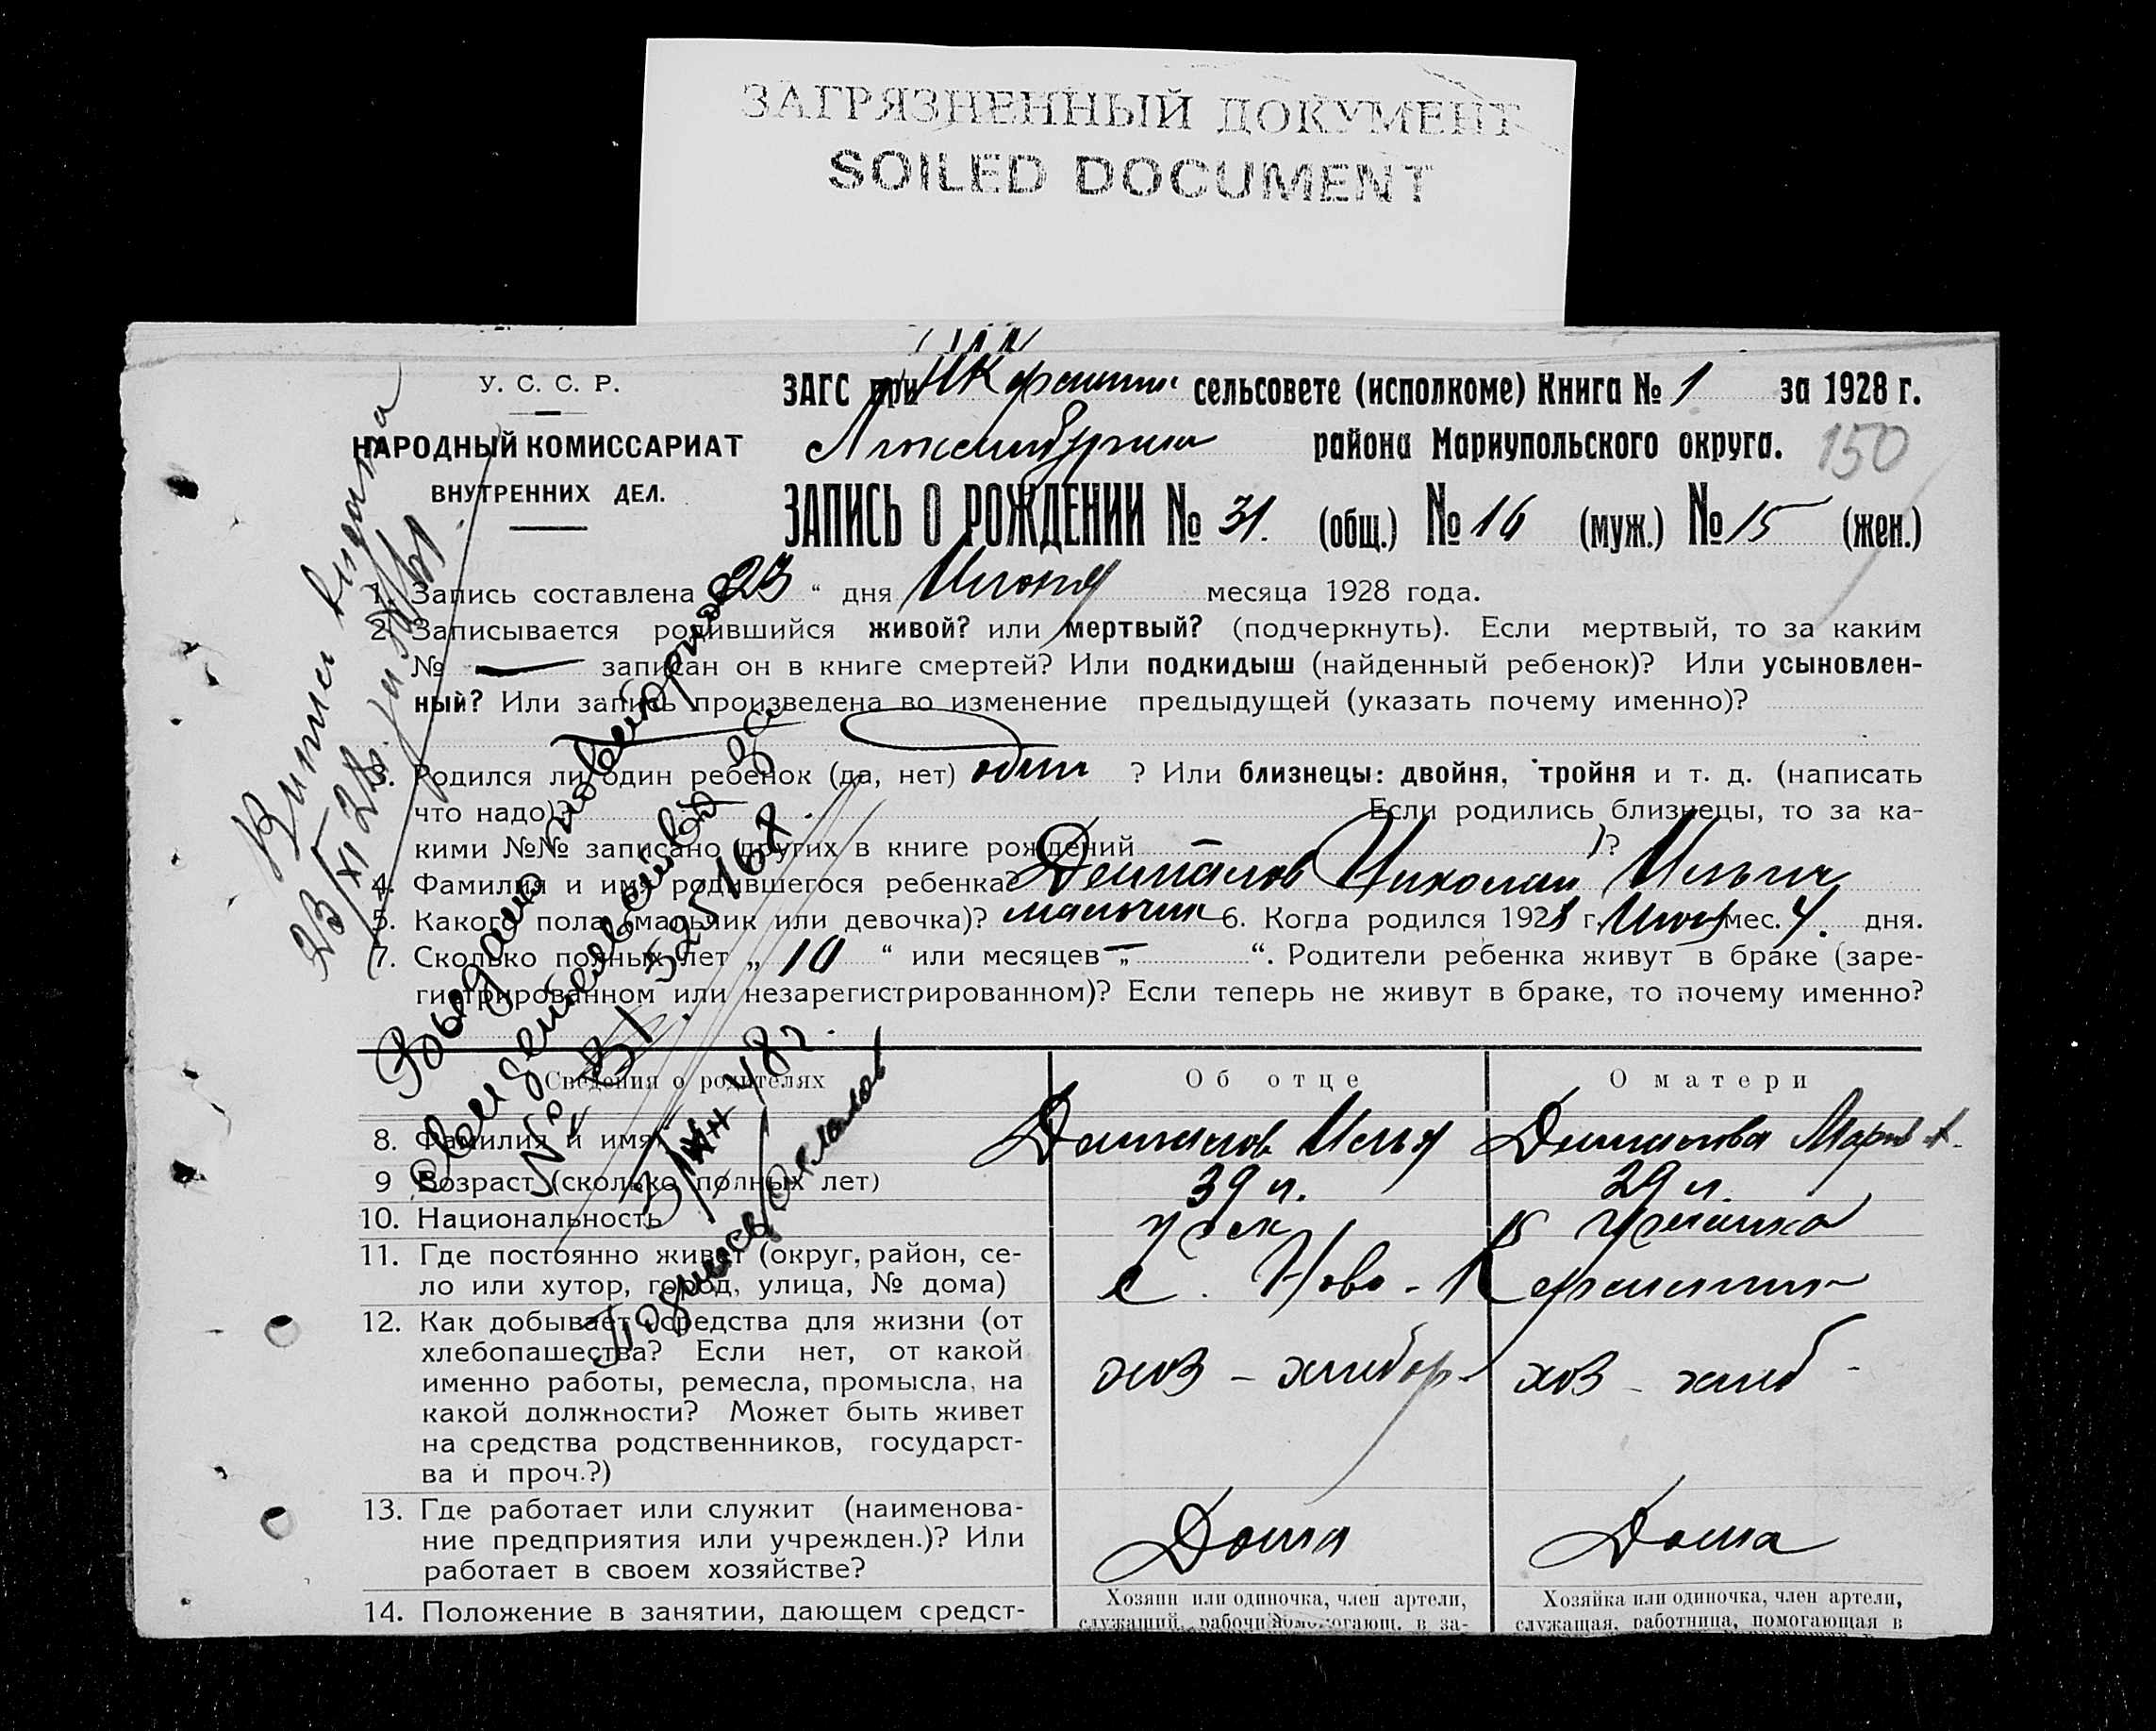 ЗАГРЯЗНЕННЫЙ ДОКУМЕНТ
SOILED DOCUMENT
У. С. С. Р.
НАРОДНЫЙ КОМИССАРИАТ
ВНУТРЕННИХ ДЕЛ.
ЗАГС при сельсовете (исполкоме) Книга № 1 за 1928 г.
района Мариупольского округа.
150
ЗАПИСЬ О РОЖДЕНИИ № 31. (общ.) № 16 (муж.) № 15 (жен.)
1. Запись составлена 23 “ дня Июня месяца 1928 года.
2. Записывается родившийся живой? или мертвый? (подчеркнуть). Если мертвый, то за каким
№ — записан он в книге смертей? Или подкидыш (найденный ребенок)? Или усыновлен-
ный? Или запись произведена во изменение предыдущей (указать почему именно)?
3. Родился ли один ребенок (да, нет) один ? Или близнецы: двойня, тройня и т. д. (написать
что надо)? Если родились близнецы, то за ка-
кими №№ записано других в книге рождений )?
4. Фамилия и имя родившегося ребенка? Николай Ильич
5. Какого пола (мальчик или девочка)? мальчик 6. Когда родился 1928 г. мес. 4. дня.
7. Сколько полных лет „ 10 “ или месяцев „ — “. Родители ребенка живут в браке (заре-
гистрированном или незарегистрированном)? Если теперь не живут в браке, то почему именно?
Выдано повторное
свидетельство
Подпись
Сведения о родителях Об отце О матери
8. Фамилия и имя Илья Мария
9 Возраст (сколько полных лет) 39 л. 29 л.
10. Национальность грек гречанка
11. Где постоянно живет (округ, район, се-
ло или хутор, город, улица, № дома) с. Ново-
12. Как добывает средства для жизни (от
хлебопашества? Если нет, от какой
именно работы, ремесла, промысла, на
какой должности? Может быть живет
на средства родственников, государст-
ва и проч.?)
хоз - хлебор. хоз - хлеб -
13. Где работает или служит (наименова-
ние предприятия или учрежден.)? Или
работает в своем хозяйстве?
Дома Дома
14. Положение в занятии, дающем средст-
Хозяин или одиночка, член артели,
служащий, рабочий, помогающ. в за-
Хозяйка или одиночка, член артели,
служащая, работница, помогающая в